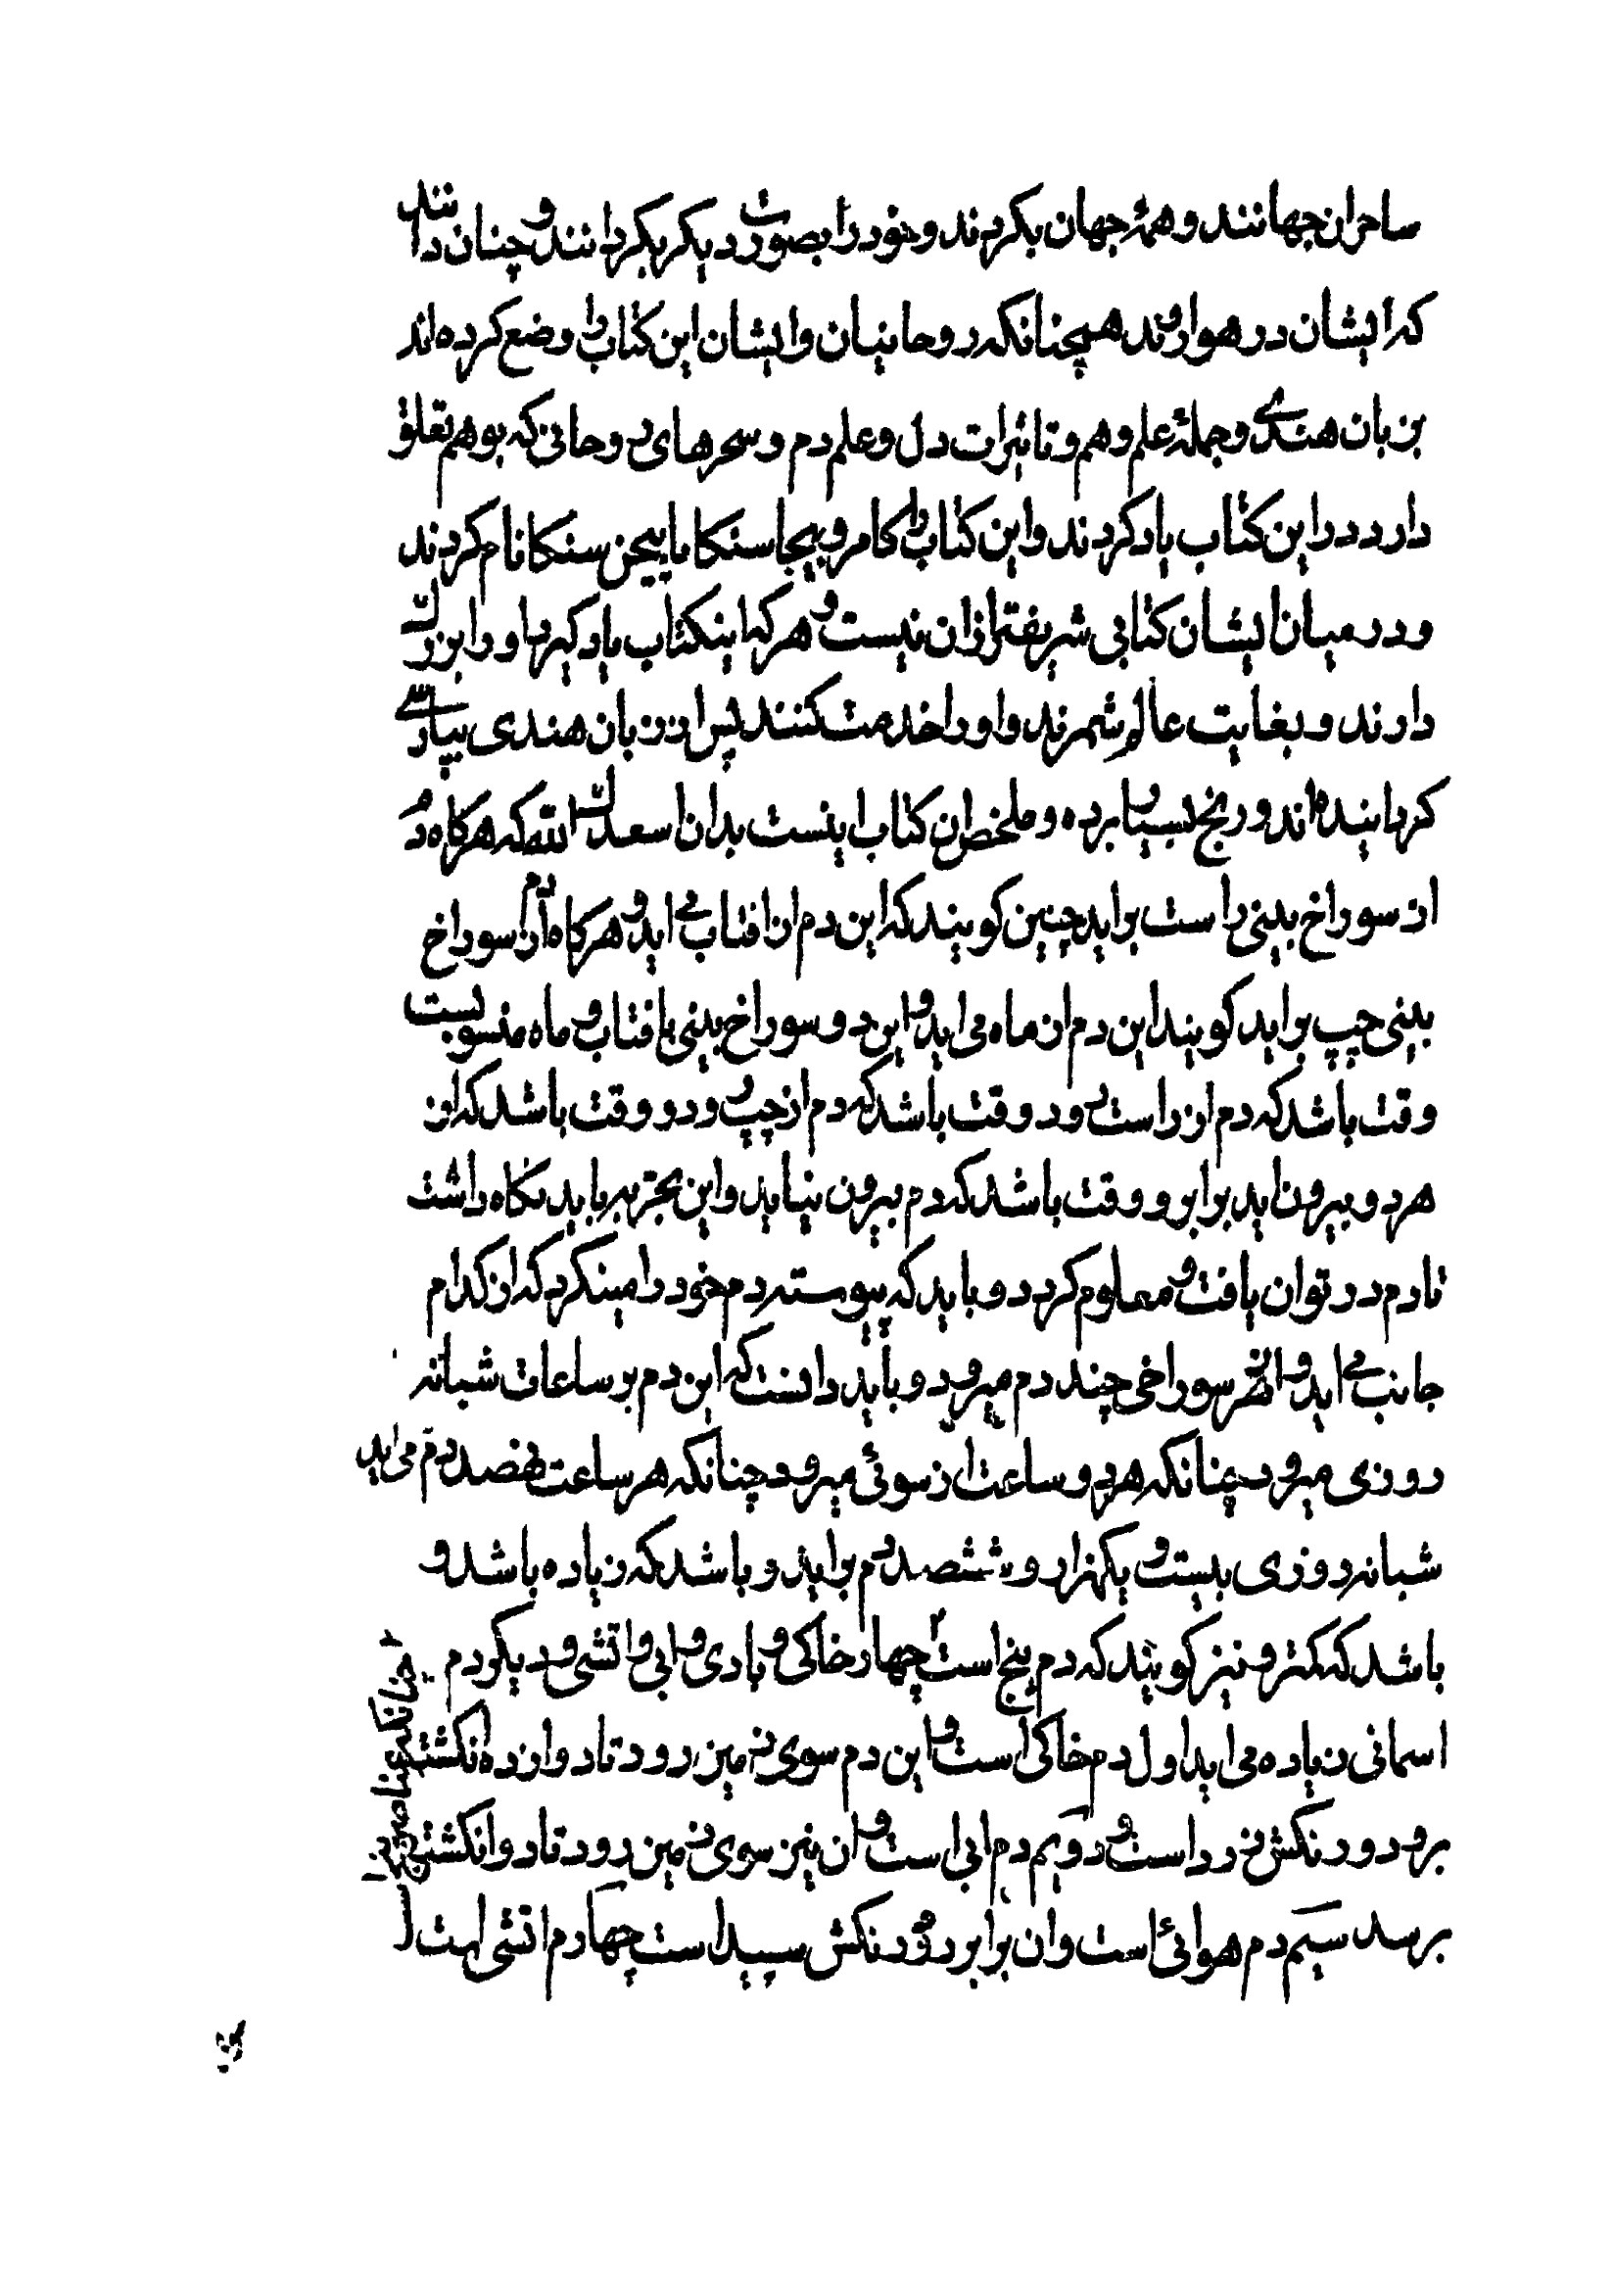 ساحران جهانند و همهٔ جهان بکردند و خود را بصورت دیکر بکردانند و چنان دانند
که ایشان در هوا روند همچنانکه روحانیان و ایشان این کتاب را وضع کرده اند
بزبان هندی و جملهٔ علم وهم و تاثیرات دل و علم دم و سحرهای روحانی که بوهم تعلق
دارد درین کتاب یاد کردند و این کتاب را کامرو بیجا سنکا یا پیجن سنکا نام کردند
و در میان ایشان کتابی شریفتر ازان نیست و هر که اینکتاب یاد کیرد او را بزرک
دارند و بغایت عالم شمرند و او را خدمت کنند پس از زبان هندی بپارسی
کردانیده اند و رنج بسیار برده و ملخص ان کتاب اینست بدان اسعدک الله که هرکاه دم
از سوراخ بینی راست براید چنین کویند که این دم از افتاب می اید و هرکاه دم از سوراخ
بینی چپ براید کویند این دم از ماه می اید و این دو سوراخ بینی بافتاب و ماه منسوبست
وقت باشد که دم از راست رود و وقت باشد که دم از چپ رود و وقت باشد که از
هر دو بیرون اید برابر و وقت باشد که دم بیرون نیاید و این بتجربه باید نکاه داشت
تا دم در توان یافت و معلوم کردد و باید که پیوسته دم خود را مینکرد که از کدام
جانب می اید و از هر سوراخی چند دم میرود و باید دانست که این دم بر ساعات شبانه
روزی میرود چنانکه هر دو ساعت از سوئی میرود چنانکه هر ساعت نهصد دم می اید
شبانه روزی بیست و یکهزار و ششصد دم براید و باشد که زیاده باشد و
باشد که کمتر و نیز کویند که دم پنج است چهار خاکی و بادی و ابی و اتشی و دیکر دم
اسمانی زیاده می اید اول دم خاکی است و این دم سوی زمین رود تا دوازده انکشت
برود و رنکش زرد است و دویم دم ابی است و ان نیز سوی زمین رود تا دو انکشت
برسد سیم دم هوائی است و ان برابر رود و رنکش سپید است چهارم دم اتشی است